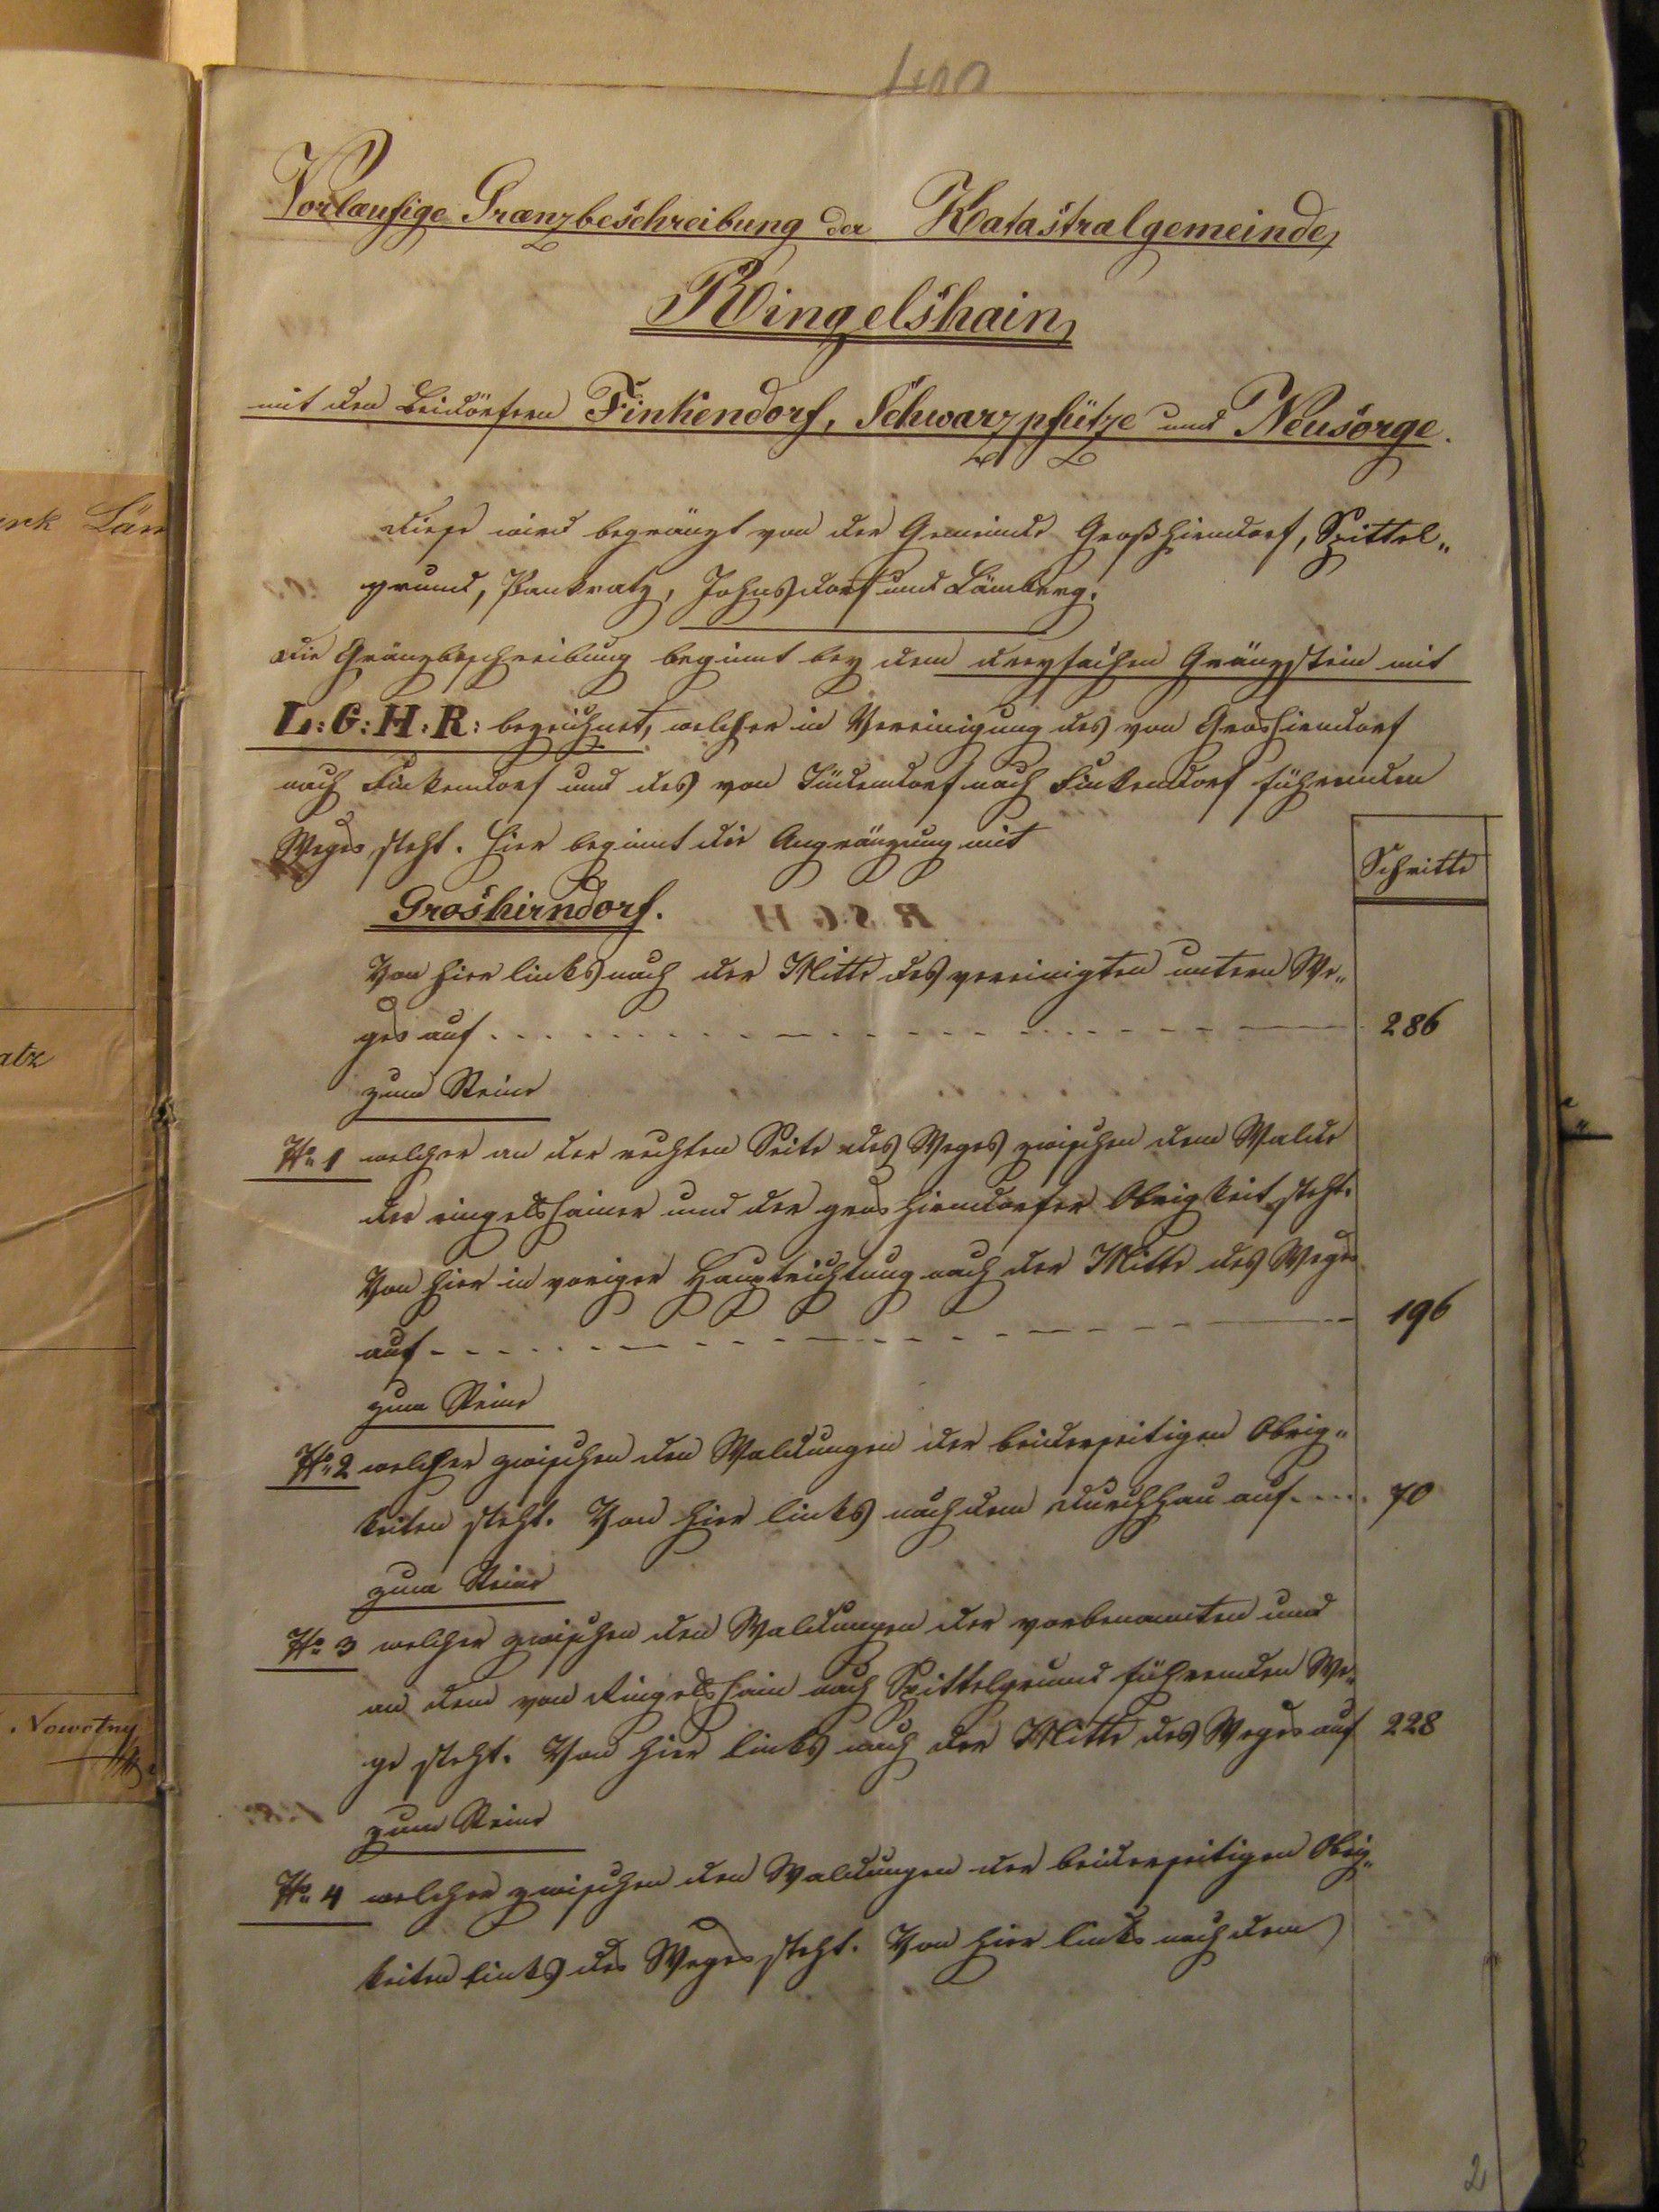 400
Vorlæufige Grænzbeschreibung der Katastralgemeinde
Ringelshain
mit den Beidörfern Finkendorf, Schwarzpfütze und Neusorge.
Diese wird begränzt von der Gemeinde Großhirndorf, Spittel„
grund, Pankratz, Johnsdorf und Lämberg.
Die Gränzbeschreibung beginnt bey dem dreyfachen Gränzstein mit
L:G:H:R: bezeichnet, welcher in Vereinigung des von Groshirndorf
nach Finkendorf und des von Jüdendorf nach Finkendorf führenden
Weges steht. Hier beginnt die Angränzung mit
Schritte
Groshirndorf.
Von hier links nach der Mitte des vereinigten untern We„
ges auf 286
zum Steine
No 1 welcher an der rechten Seite des Weges zwischen dem Walde
der ringelshainer und der groshirndorfer Obrigkeit steht.
Von hier in voriger Hauptrichtung nach der Mitte des Weges
auf 196
zum Steine
No 2 welcher zwischen den Waldungen der beiderseitigen Obrig„
keiten steht. Von hier links nach dem Durchhau auf 70
zum Steine
No 3 welcher zwischen den Waldungen der vorbenannten und
an dem von Ringelshain nach Spittelgrund führenden We„
ge steht. Von hier links nach der Mitte des Weges auf 228
zum Steine
No 4 welcher zwischen den Waldungen der beiderseitigen Obrig„
keiten links des Weges steht. Von hier links nach dem
2
atz
Nowotny